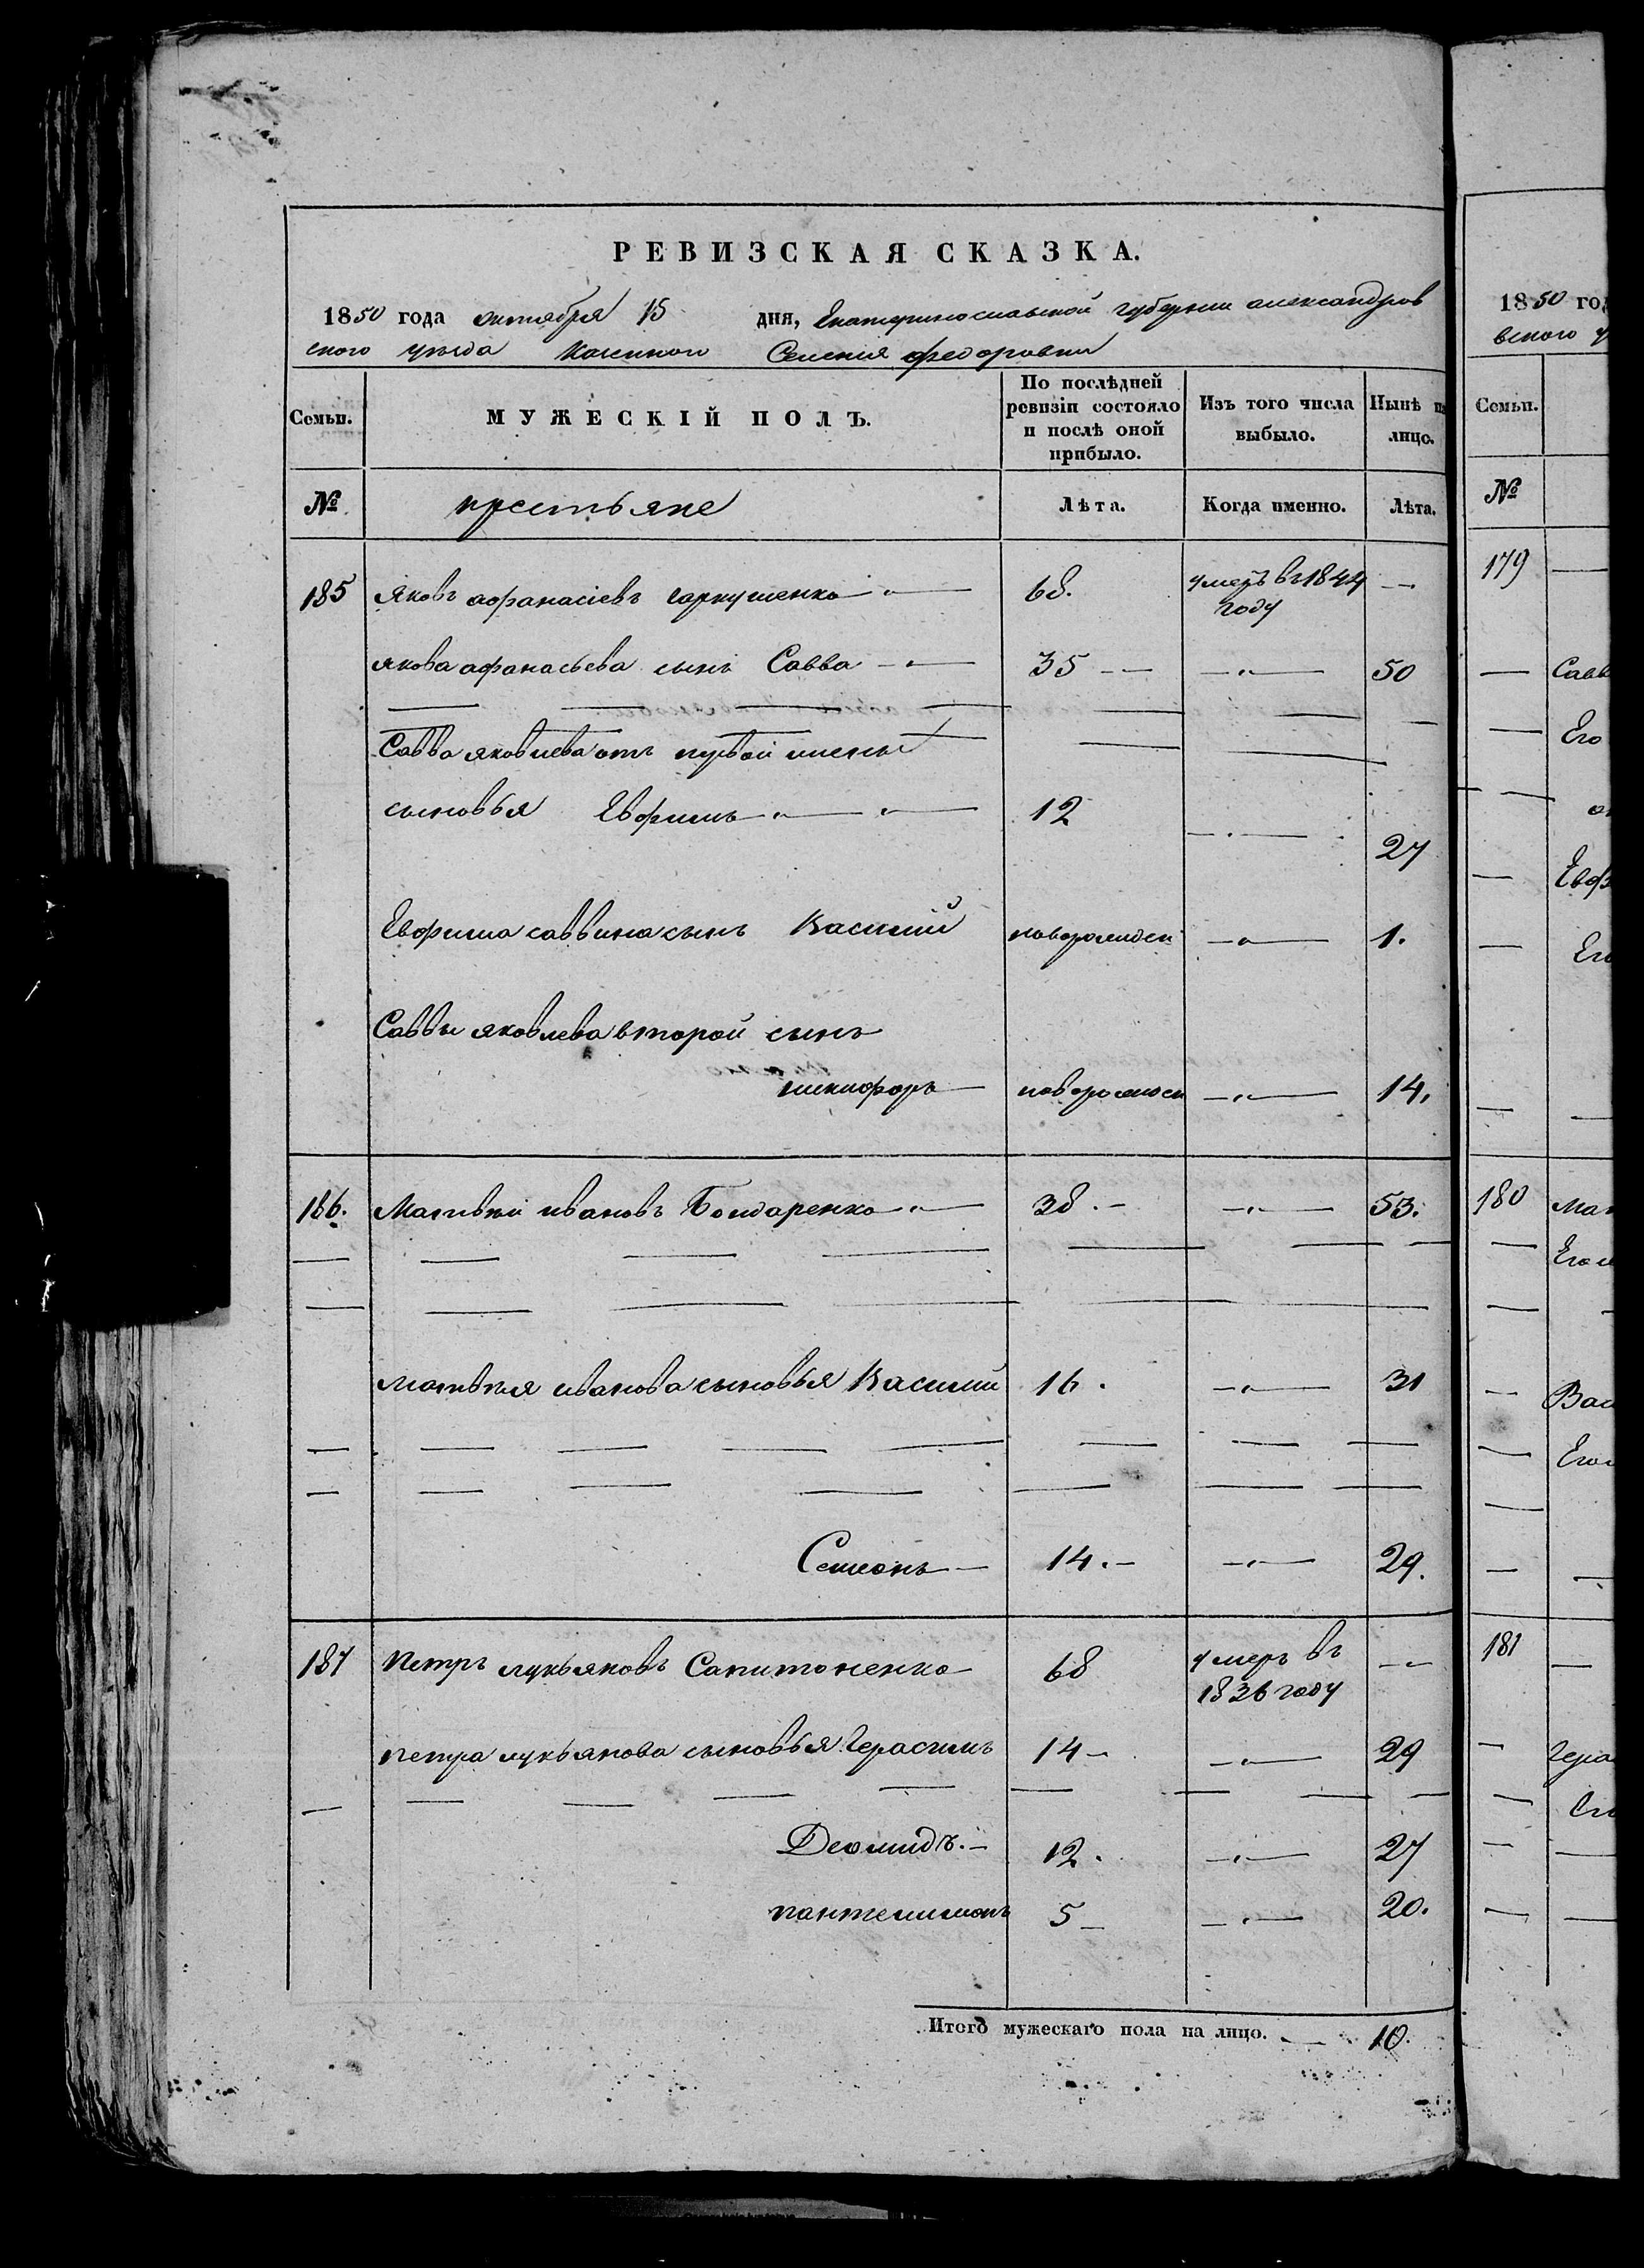 РЕВИЗСКАЯ СКАЗКА.
1850 года октября 15 дня, Екатеринославской губернии александров
ского уезда казенного Селения федоровки
Семьи.
МУЖЕСКІЙ ПОЛЪ.
По послѣдней ревизіи состояло и послѣ оной прибыло.
Изъ того числа выбыло.
Нынѣ на лицо.
№ крестьяне Лѣта. Когда именно. Лѣта.
185 Яковъ афанасіевъ гаркушенко 68. умеръ въ 1844 году —
якова афанасьева сынъ Савва 35 — 50
Савва яковлева отъ первой жены
сыновья Ефимъ 12 — 27
Ефима саввина сынъ Василий новорожден — 1.
Саввы яковлева второй сынъ
никифоръ новорожден — 14.
186. Матвѣй ивановъ Бондаренко 38. — 53.
матвѣя иванова сыновья Василий 16. — 31
Семенъ 14. — 29.
187 Петръ лукьяновъ Сапитоненко 68 умеръ въ 1836 году —
петра лукьянова сыновья Герасимъ 14 — 29
Деомидъ. 12. — 27
пантелимонъ 5 — 20.
Итого мужескаго пола на лицо. — 10.
1850 год
вского у
Семьи.
№
179 —
— Савв
— Его
— Евф
— Его
180 Мат
— Его
— Вас
— Его
181 —
— Гера
— Его